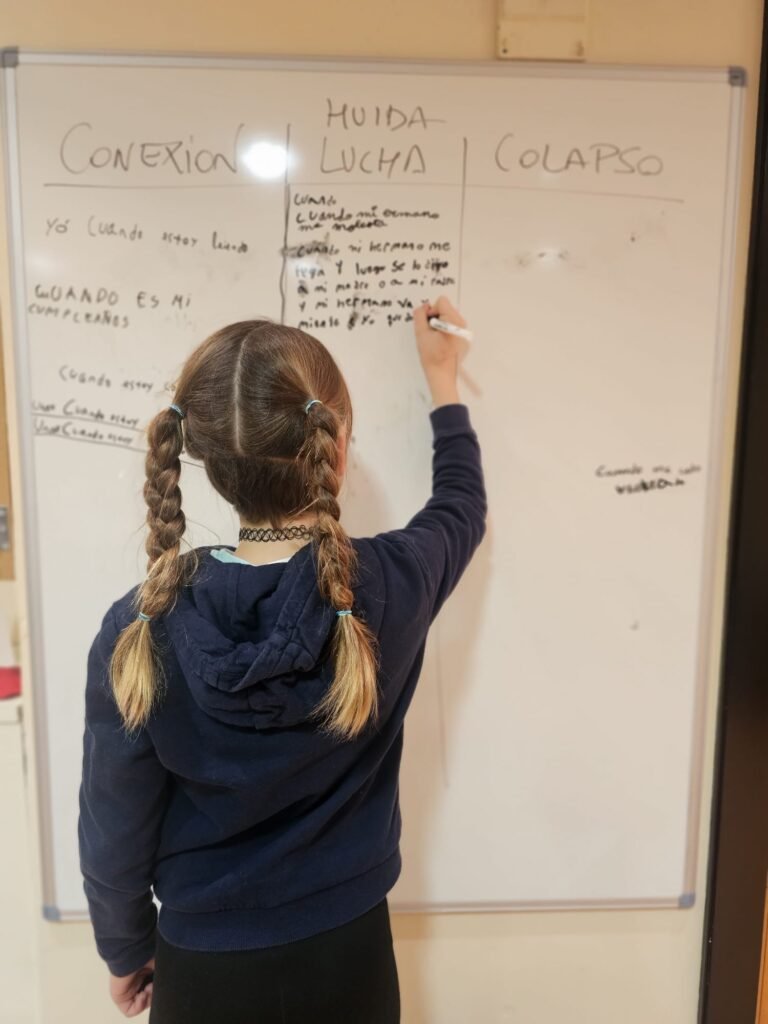 CONEXION
HUIDA
LUCHA
COLAPSO
YO CUANDO estoy
CUANDO ES MI
CUMPLEAÑOS
CUANDO estoy
CUANDO estoy
CUANDO estoy
CUANDO
CUANDO mi ermano
me molesta
CUANDO mi hermano me
pega Y luego se lo digo
a mi madre o a mi padre
y mi hermano va
Yo
CUANDO